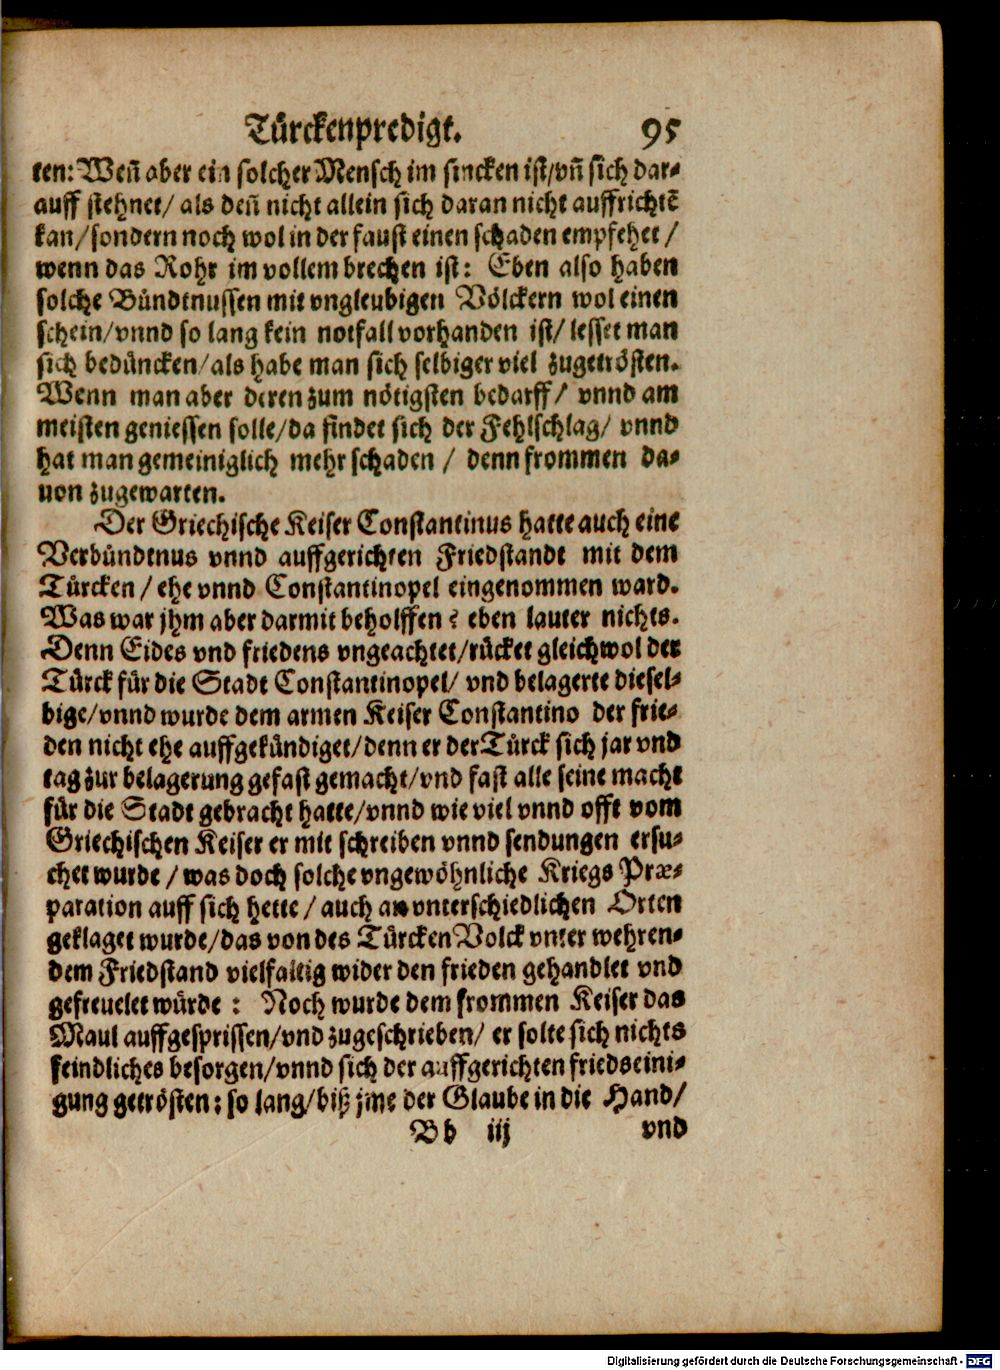 Türckenpredigt. 95
ten: Weñ aber ein solcher Mensch im sincken ist/vñ sich dar-
auff stehnet/ als deñ nicht allein sich daran nicht auffrichtē
kan/sondern noch wol in der faust einen schaden empfehet/
wenn das Rohr im vollem brechen ist: Eben also haben
solche Bündtnussen mit vngleubigen Völckern wol einen
schein/vnnd so lang kein notfall vorhanden ist/ lesset man
sich bedüncken/als habe man sich selbiger viel zugetrösten.
Wenn man aber deren zum nötigsten bedarff/ vnnd am
meisten geniessen solle/da findet sich der Fehlschlag/ vnnd
hat man gemeiniglich mehr schaden / denn frommen da-
uon zugewarten.
Der Griechische Keiser Constantinus hatte auch eine
Verbündtnus vnnd auffgerichten Friedstandt mit dem
Türcken / ehe vnnd Constantinopel eingenommen ward.
Was war jhm aber darmit beholffen? eben lauter nichts.
Denn Eides vnd friedens vngeachtet/rücket gleichwol der
Türck für die Stadt Constantinopel/ vnd belagerte diesel-
bige/vnnd wurde dem armen Keiser Constantino der frie-
den nicht ehe auffgekündiget/denn er der Türck sich jar vnd
tag zur belagerung gefast gemacht/vnd fast alle seine macht
für die Stadt gebracht hatte/vnnd wie viel vnnd offt vom
Griechischen Keiser er mit schreiben vnnd sendungen ersu-
chet wurde / was doch solche vngewöhnliche Kriegs Præ-
paration auff sich hette / auch an vnterschiedlichen Orten
geklaget wurde/das von des Türcken Volck vnter wehren-
dem Friedstand vielfaltig wider den frieden gehandlet vnd
gefreuelet würde : Noch wurde dem frommen Keiser das
Maul auffgesprissen/vnd zugeschrieben/ er solte sich nichts
feindliches besorgen/vnnd sich der auffgerichten friedseini-
gung getrösten: so lang/biß jme der Glaube in die Hand/
Bb iij vnd
Digitalisierung gefördert durch die Deutsche Forschungsgemeinschaft - DFG